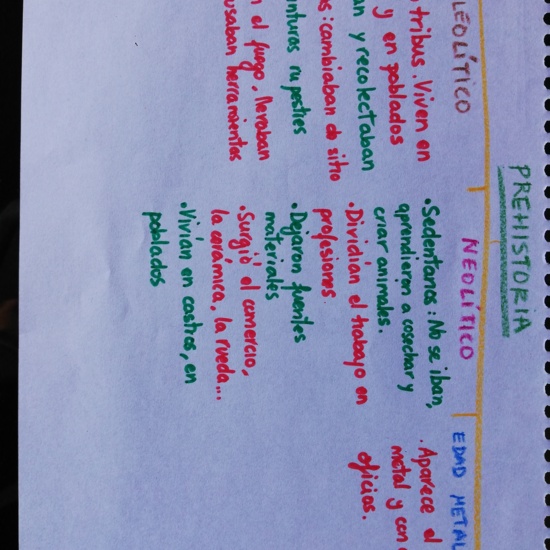 PREHISTORIA
LEOLÍTICO
tribus. Viven en
y en poblados
an y recolectaban
as: cambiaban de sitio
inturas rupestres
n el fuego. llevaban
usaban herramientas
NEOLÍTICO
•Sedentarios: No se iban,
aprendieron a cosechar y
criar animales.
•Dividían el trabajo en
profesiones.
•Dejaron fuentes
materiales
•Surgió el comercio,
la cerámica, la rueda...
•Vivían en castros, en
poblados
EDAD METAL
•Aparece el
metal y con
oficios.